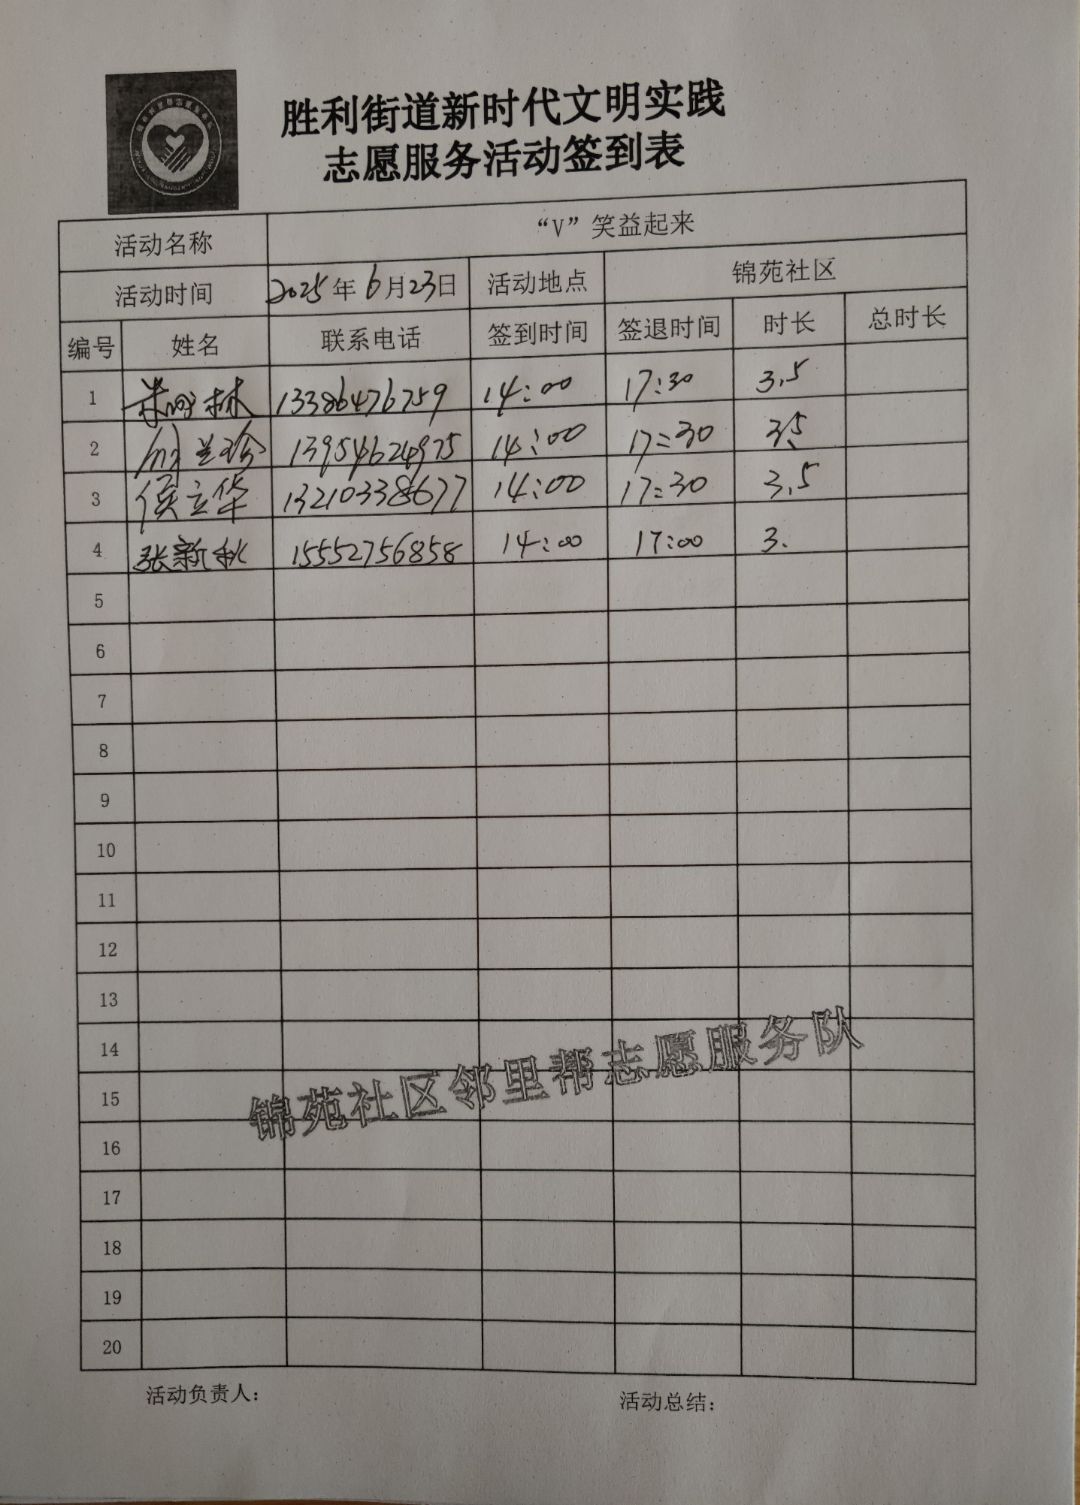 胜利街道新时代文明实践
志愿服务活动签到表
活动名称 “V”笑益起来
活动时间 2025年6月23日 活动地点 锦苑社区
编号 姓名 联系电话 签到时间 签退时间 时长 总时长
1 林 13386476759 14:00 17:30 3.5
2 兰珍 13954624975 14:00 17:30 3.5
3 侯立华 13210338677 14:00 17:30 3.5
4 张新秋 15552756858 14:00 17:00 3.
5
6
7
8
9
10
11
12
13
14
15
16
17
18
19
20
锦苑社区邻里帮志愿服务队
活动负责人: 活动总结: